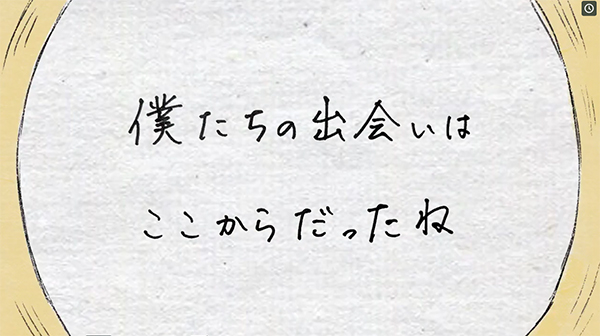 僕たちの出会いは
ここからだったね